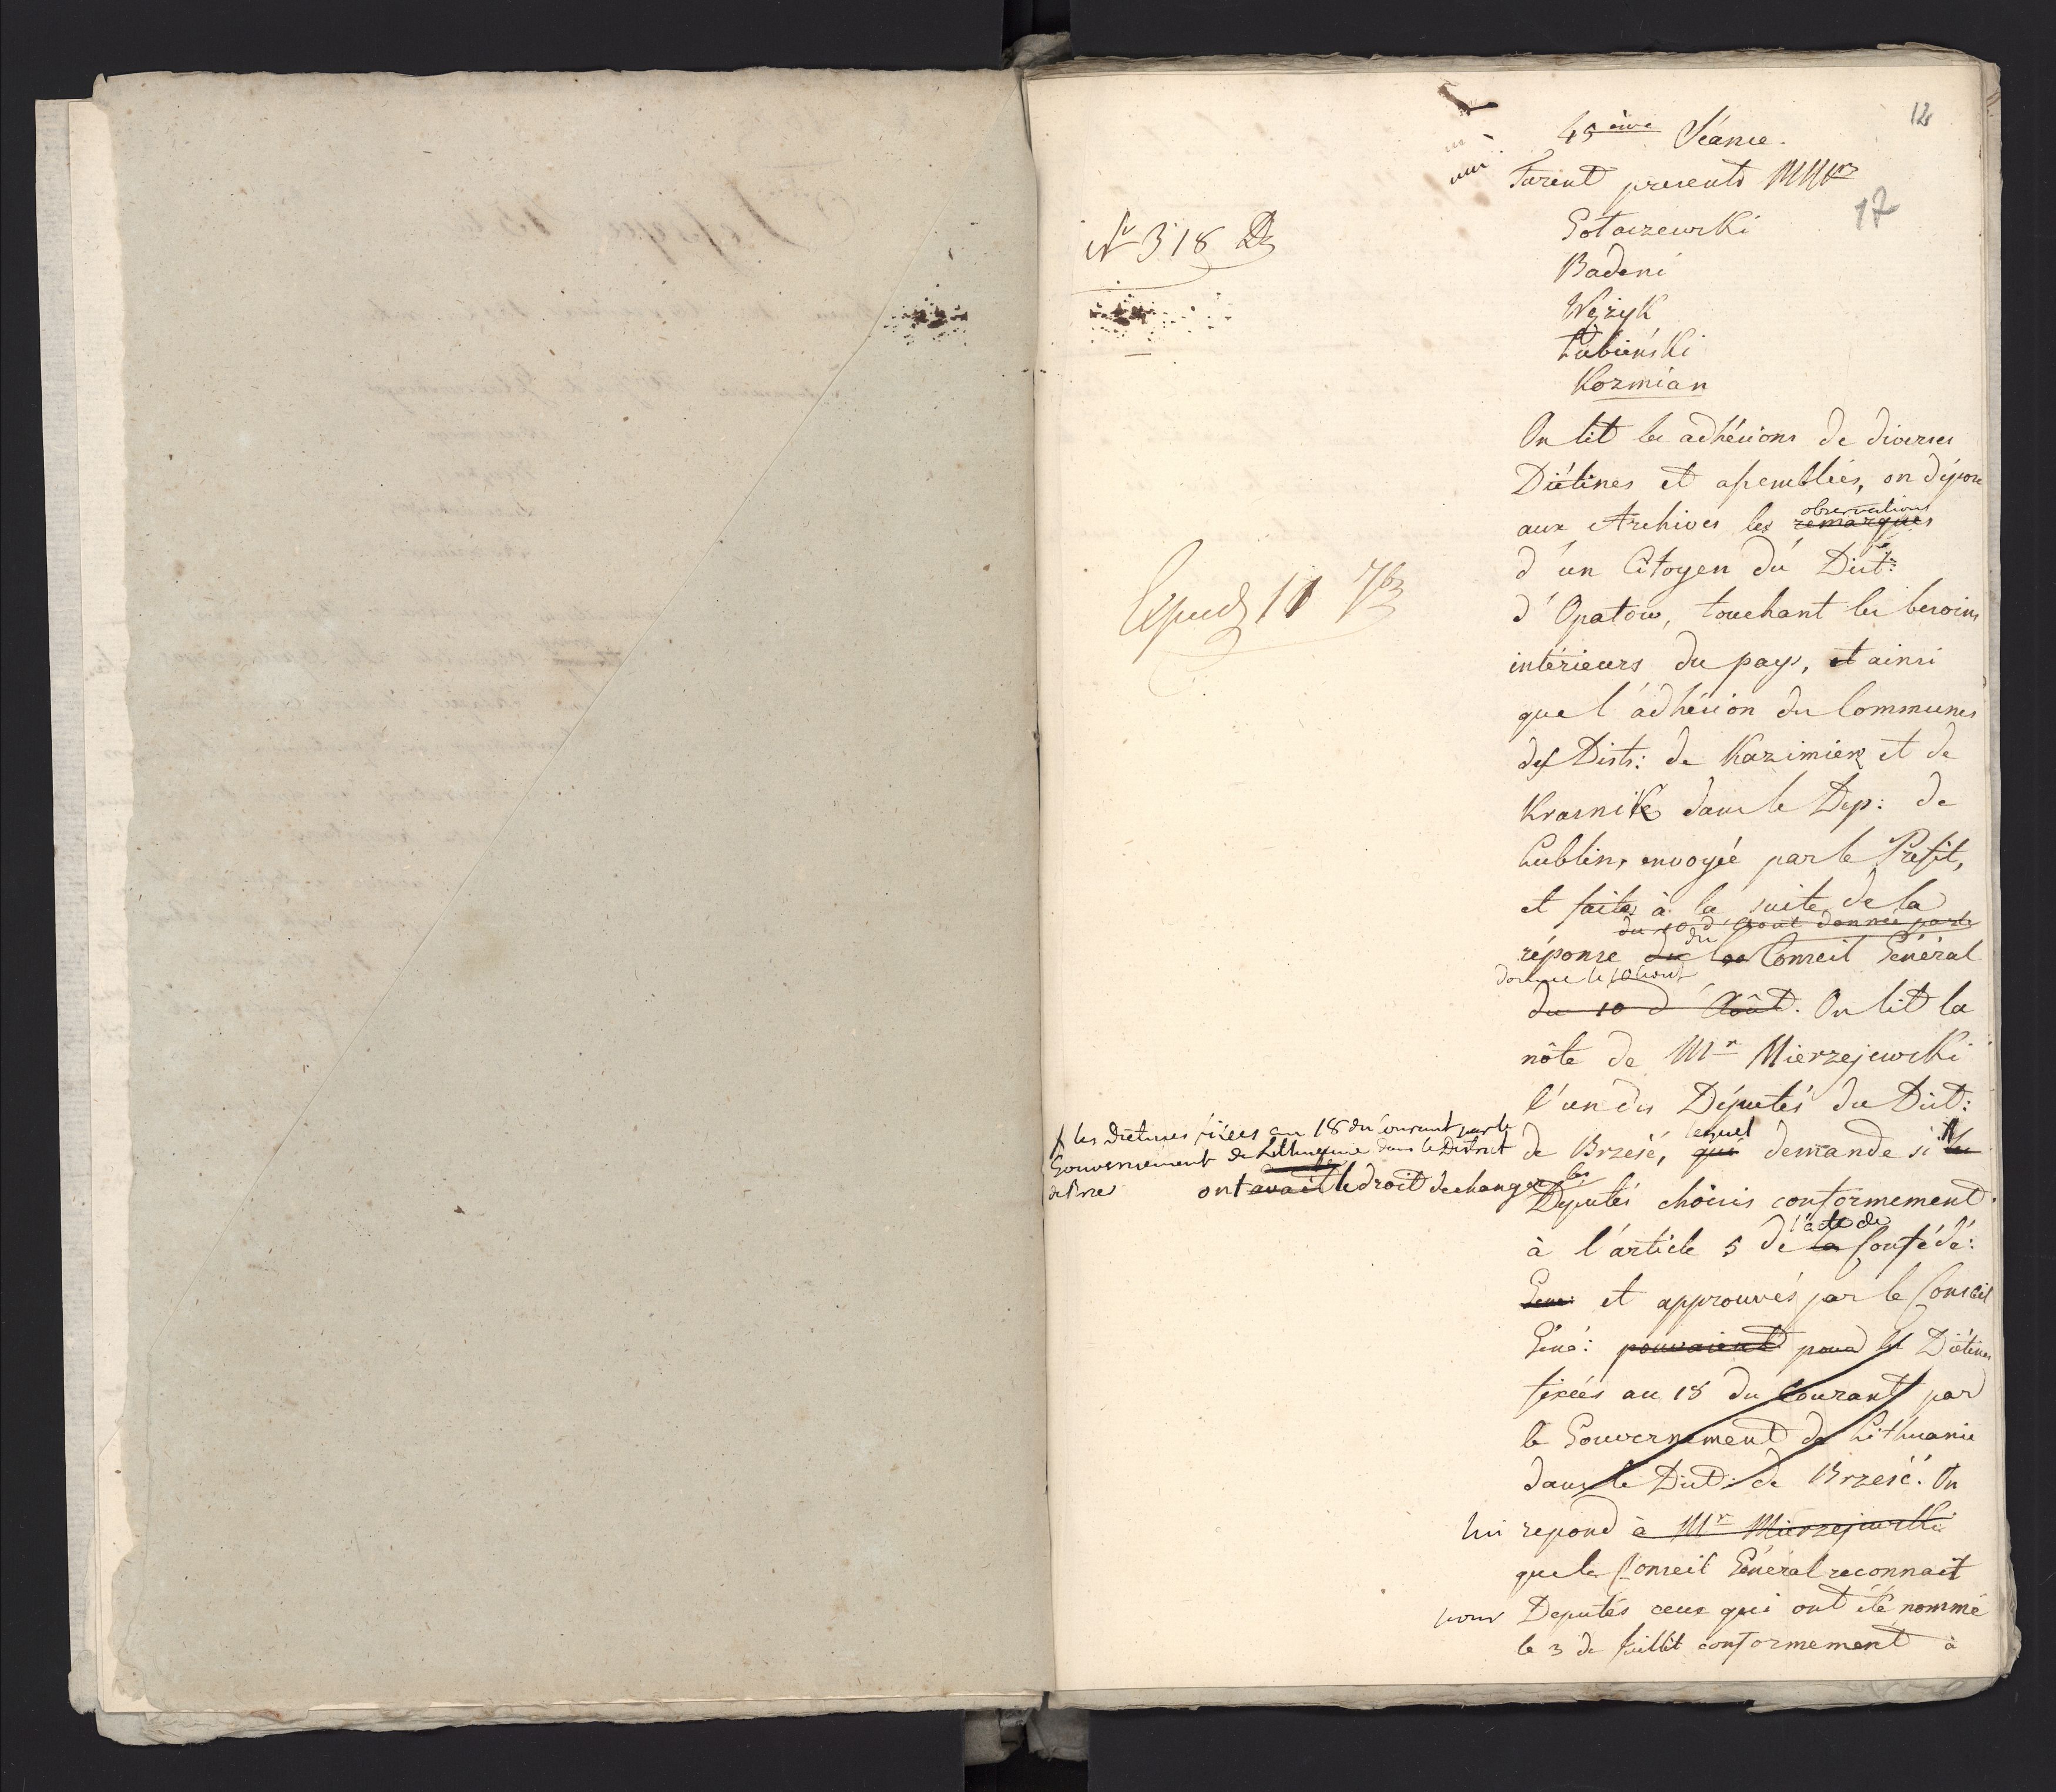 12
45ème Séance.
Furent presents MMrs
17
Gołaszewski
Badeni
Wężyk
Łubieński
Kozmian
No 318 D
Exped 11 7b
On lit les adhésions de diverses
Diétines et assemblées, on dépose
observations
aux Archives les remarques
d'un Citoyen du Dist:
d'Opatow, touchant les besoins
intérieurs du pays, et ainsi
que l'adhésion des Communes
des Dists: de Kazimierz et de
Krasnik dans le Dep: de
Lublin, envoyée par le Préfét,
et faites à la suite de la
du 10 d'Aout donnée par le
réponse du Conseil Général
donnée le 10 Aout
du 10 d'Août. On lit la
nôte de Mr Mierzejewski
l'un des Députés du Dist:
lequel
de Brześć, qui demande si les
les Diétines fixées au 18 du courant par le
Gouvernement de Lithuanie dans le District
de Brześć ont avait le droit de changer les
Députés choisis conformement
l'acte de
à l'article 5 de la Confédé:
Gene: et approuvés par le Conseil
Géné: pouvaient pour les Diétines
fixées au 18 du Courant par
le Gouvernement de Lithuanie
dans le Dist: de Brześć. On
lui repond à Mr Mierzejewski
que le Conseil Général reconnait
pour Deputés ceux qui ont été nommé
le 3 de Juillet conformement à